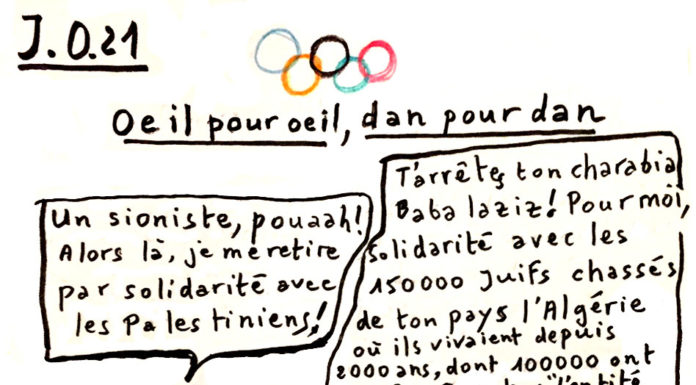 J.O.21
Oeil pour oeil, dan pour dan
Un sioniste, pouaah!
Alors là, je me retire
par solidarité avec
les Palestiniens!
T'arrêtes ton charabia
Baba laziz! Pour moi,
solidarité avec les
150000 Juifs chassés
de ton pays l'Algérie
où ils vivaient depuis
2000 ans, dont 100000 ont
"l'entité